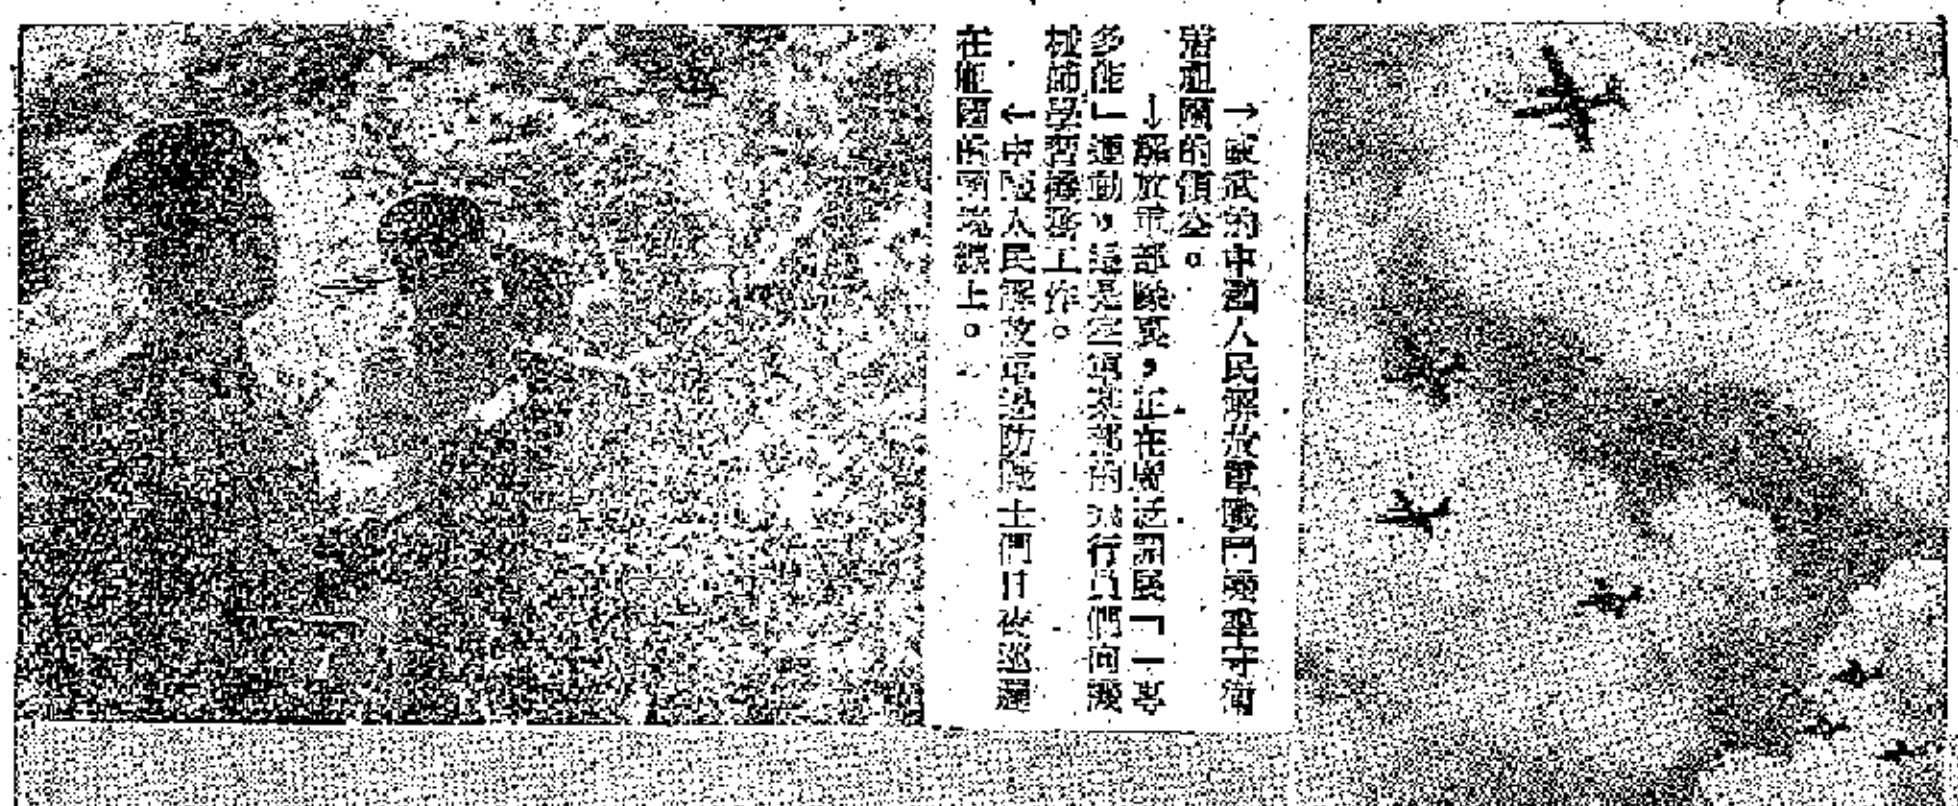 →威武的中國人民解放軍戰鬥機羣守衛
着祖國的領空。
↓解放軍部隊裏，正在廣泛開展「一專
多能」運動，這是空軍某部的飛行員們向機
械師學習機務工作。
←中國人民解放軍邊防戰士們日夜巡邏
在祖國的國境線上。